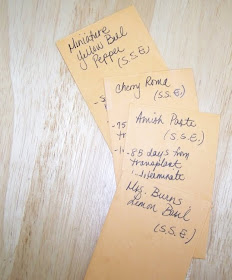 Miniature
Yellow Bell
Pepper
(S.S.E.)
Cherry Roma
(S.S.E.)
-75
Amish Paste
(S.S.E.)
-85 days from
transplant
Mrs. Burns'
Lemon Basil
(S.S.E.)